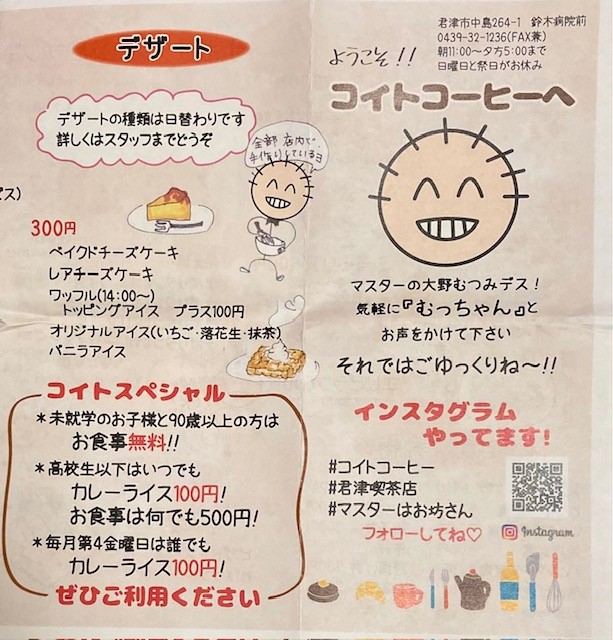 デザート
デザートの種類は日替わりです
詳しくはスタッフまでどうぞ
全部店内で、
手作りしているヨ
ピス)
300円
ベイクドチーズケーキ
レアチーズケーキ
ワッフル(14:00〜)
トッピングアイス プラス100円
オリジナルアイス(いちご・落花生・抹茶)
バニラアイス
コイトスペシャル
*未就学のお子様と90歳以上の方は
お食事無料!!
*高校生以下はいつでも
カレーライス100円!
お食事は何でも500円!
*毎月第4金曜日は誰でも
カレーライス100円!
ぜひご利用ください
君津市中島264-1 鈴木病院前
0439-32-1236(FAX兼)
朝11:00〜夕方5:00まで
日曜日と祭日がお休み
ようこそ!!
コイトコーヒーへ
マスターの大野むつみデス!
気軽に『むっちゃん』と
お声をかけて下さい
それではごゆっくりね〜!!
インスタグラム
やってます!
#コイトコーヒー
#君津喫茶店
#マスターはお坊さん
フォローしてね♡
Instagram